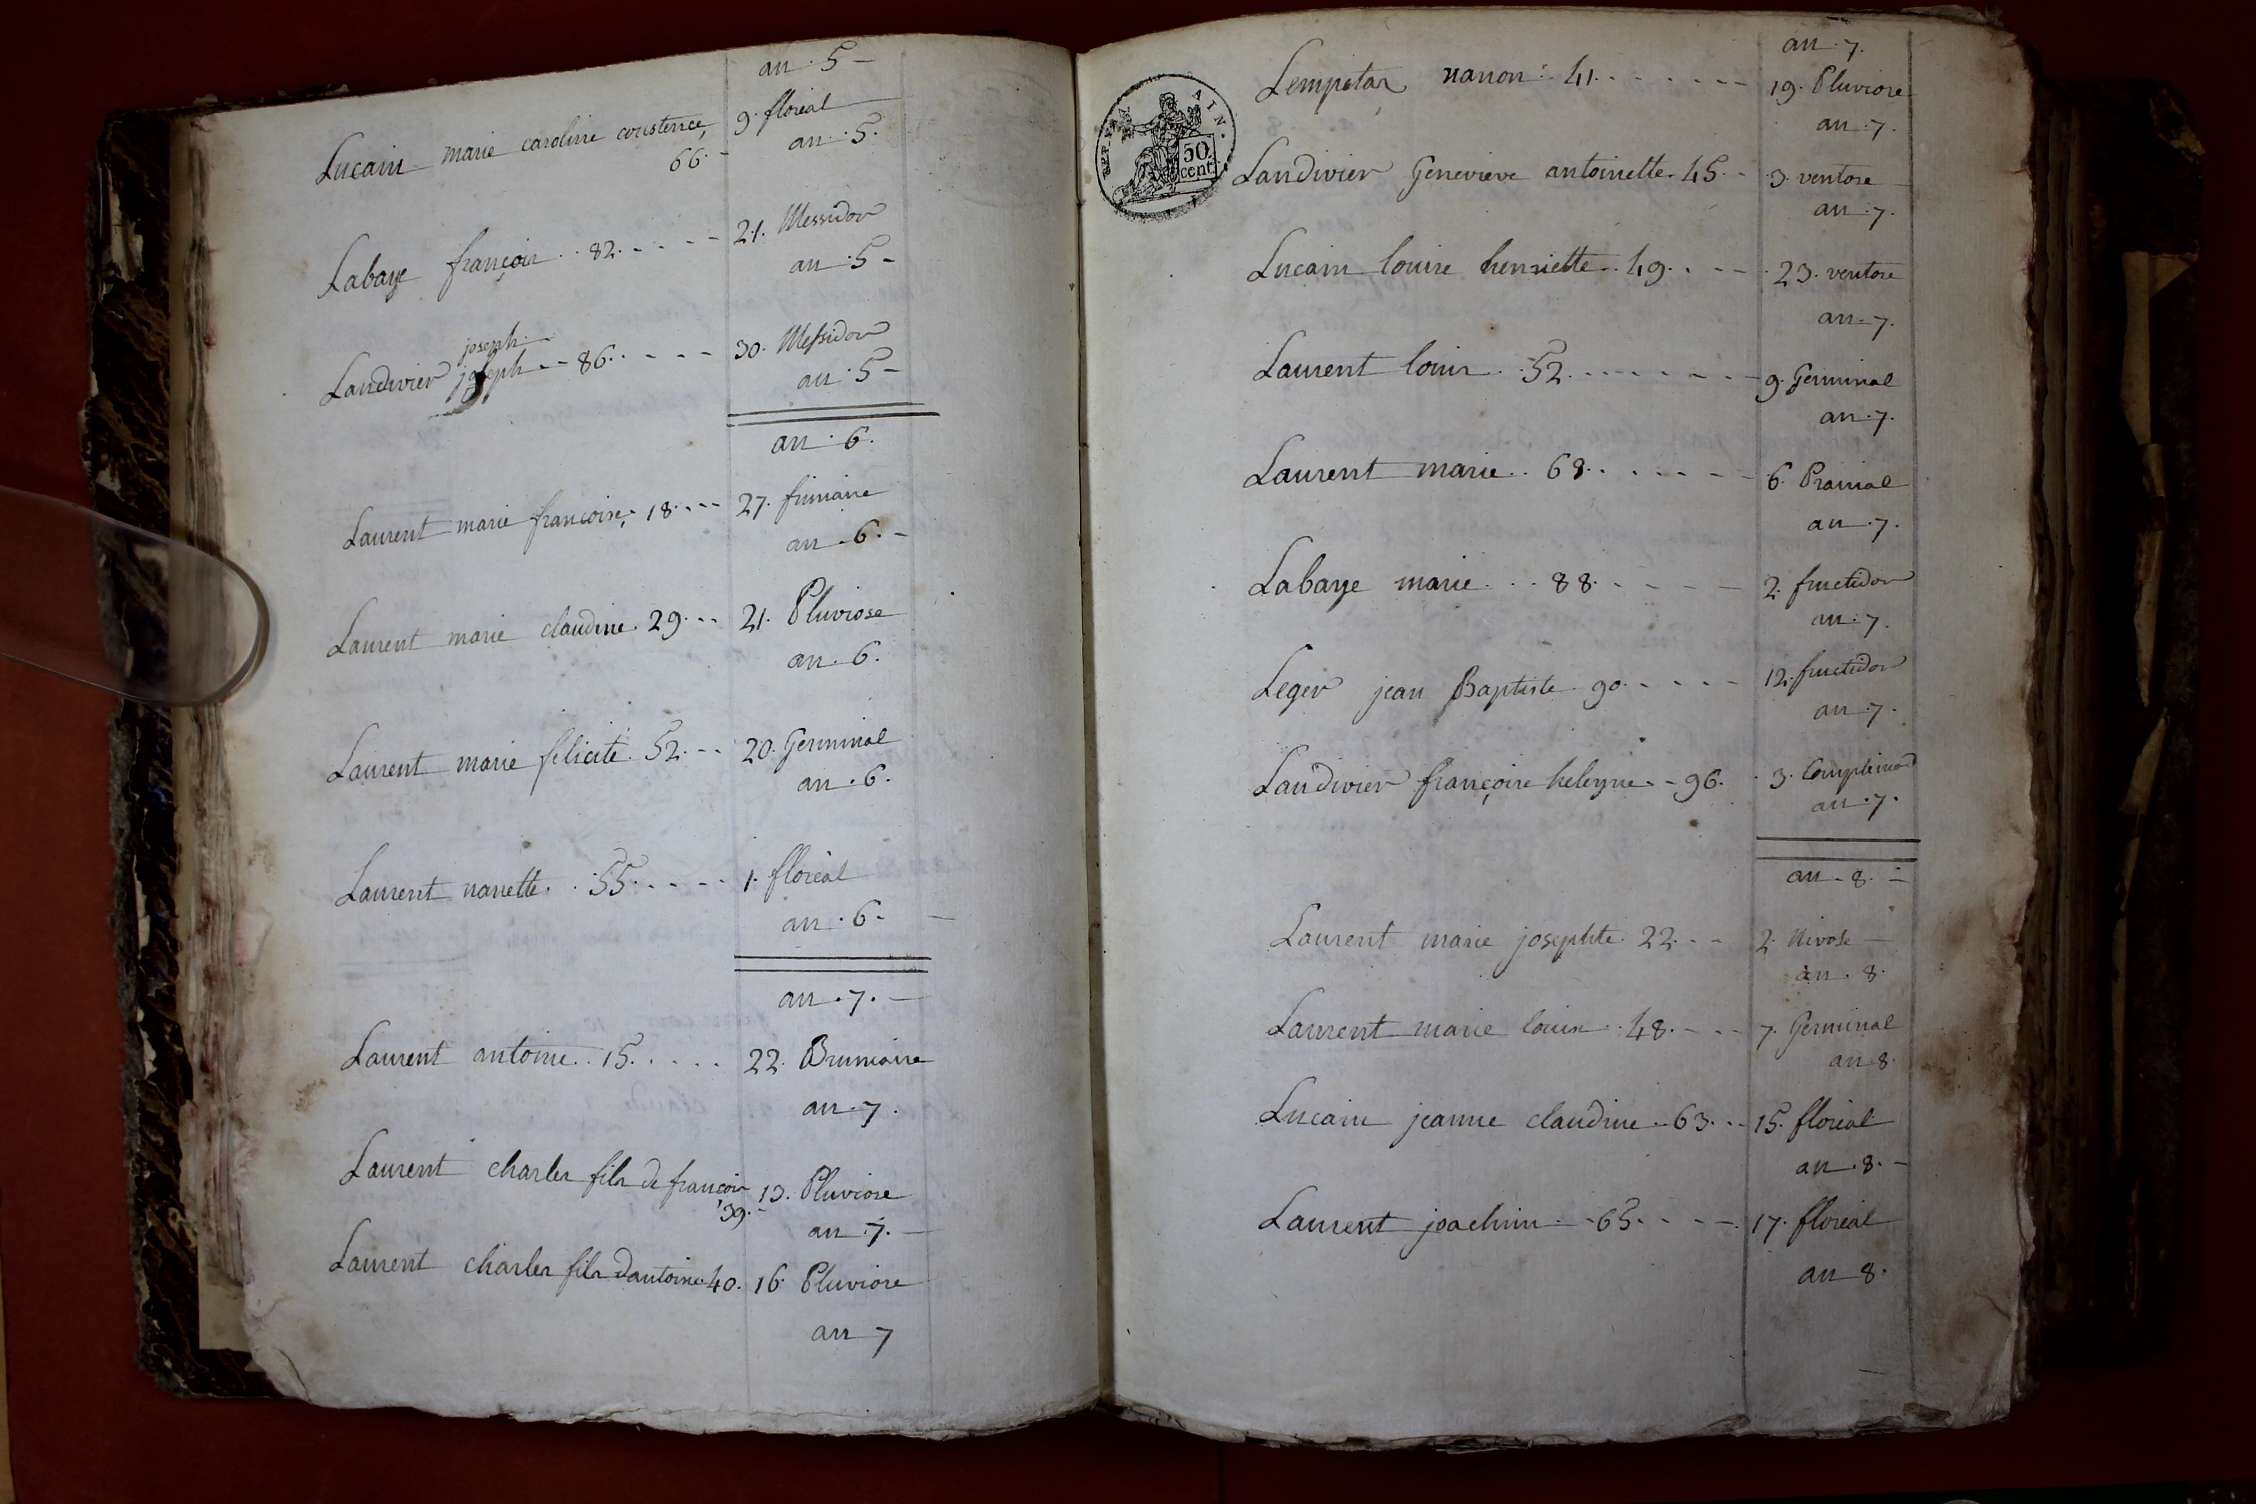 an . 5 -
Lucain marie caroline constence, 9. floréal
66. - an . 5.
Labaye françois . . 82. - - - - 21. Messidor
an . 5 -
joseph.
Landivier joseph - - 86. . - - - 30. Messidor
an . 5 -
an . 6.
Laurent marie francoise, - 18. - - - 27. frimaire
an . 6. -
Laurent marie claudine. 29. - - 21. Pluviose
an . 6.
Laurent marie félicité. 52. - - 20. Germinal
an . 6.
Laurent nanette. . 55. - - - - 1. floréal
an . 6. -
an . 7. -
Laurent antoine . . 15. . . . . 22. Brumaire
an . 7.
Laurent charles fils de françois 13. Pluviose
39. - an . 7. -
Laurent charles fils dantoine. 40. 16. Pluviose
an 7
an . 7.
Lempetar nanon : 41. - - - - - - 19. Pluviose
an . 7.
REP. AIN.
50 cent.
Landivier Genevieve antoinette. 45. - 3. ventose
an . 7.
Lucain louise henriette. . 49. . - - 23. ventose
an . 7.
Laurent louis . . 52. - - - - - - 9. Germinal
an . 7.
Laurent marie . . 68. . - - - - 6. Prairial
an . 7.
Labaye marie . . . 88. - - - - 2. fructidor
an . 7.
Leger jean Baptiste . 90. - - - - 12. fructidor
an . 7.
Landivier françoise heleyne. - 96. 3. Complément
an . 7.
an . 8. -
Laurent marie josephte. 22. - - 2. Nivose
an . 8.
Laurent marie louis . . 48. - - - 7. Germinal
an 8.
Lucain jeanne claudine . . 63. . - 15. floréal
an . 8. -
Laurent joachim . . 65. - - - - 17. floréal
an 8.